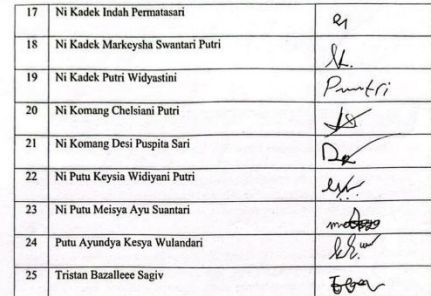 17 Ni Kadek Indah Permatasari
18 Ni Kadek Markeysha Swantari Putri
19 Ni Kadek Putri Widyastini
20 Ni Komang Chelsiani Putri
21 Ni Komang Desi Puspita Sari
22 Ni Putu Keysia Widiyani Putri
23 Ni Putu Meisya Ayu Suantari
24 Putu Ayundya Kesya Wulandari
25 Tristan Bazalleee Sagiv